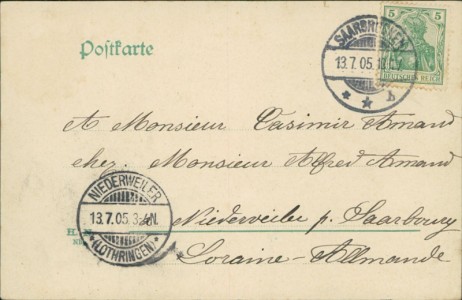 Postkarte
SAARBRÜCKEN
13.7.05.
b
5 5
DEUTSCHES REICH
A Monsieur Casimir Amand
chez Monsieur Alfred Amand
NIEDERWEILER
13.7.05. 3-4N.
(LOTHRINGEN)
Niederweiler p. Saarbourg
Loraine-Allmande